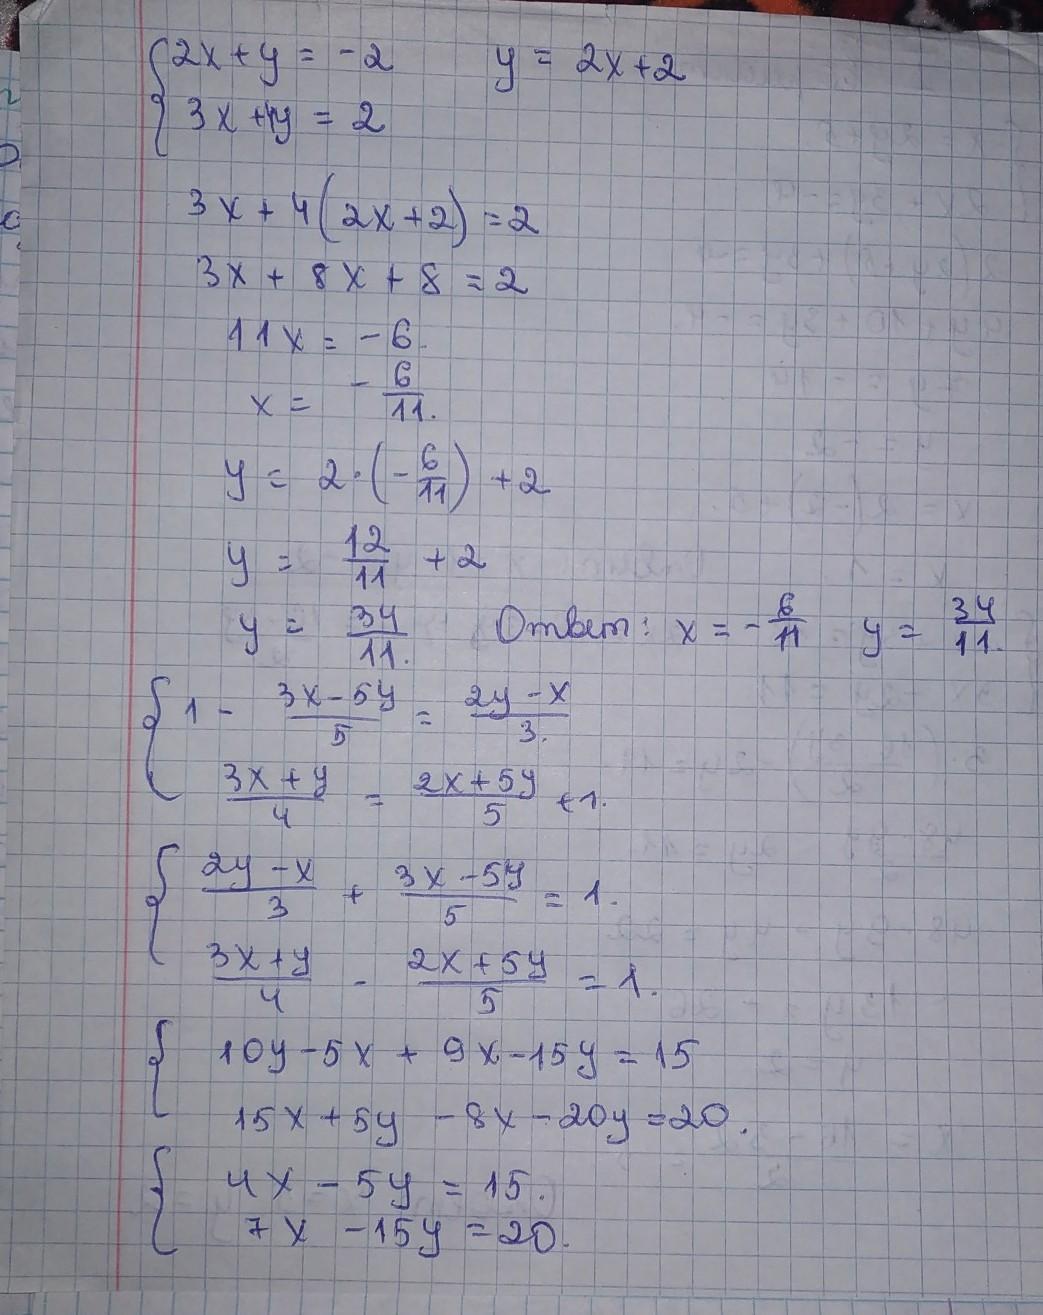 {2x+y = -2 y = 2x+2
3x+4y = 2
3x+4(2x+2)=2
3x + 8x + 8 = 2
11x = -6.
x = - 6/11.
y = 2·(-6/11) + 2
y = 12/11 + 2
y = 34/11. Ответ: x = - 6/11 y = 34/11.
{1 - (3x-5y)/5 = (2y-x)/3.
(3x+y)/4 = (2x+5y)/5 +1.
{(2y-x)/3 + (3x-5y)/5 = 1.
(3x+y)/4 - (2x+5y)/5 = 1.
{10y-5x + 9x-15y = 15
15x+5y -8x-20y=20.
{4x - 5y = 15.
7x -15y =20.